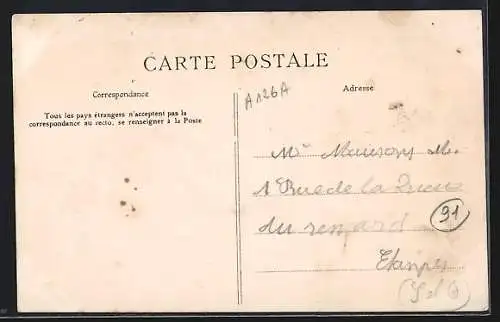 CARTE POSTALE
Correspondance
Adresse
Tous les pays étrangers n'acceptent pas la
correspondance au recto, se renseigner à la Poste
A126A
1 Rue de la Queue
du renard
91
Etampes
(S et O)